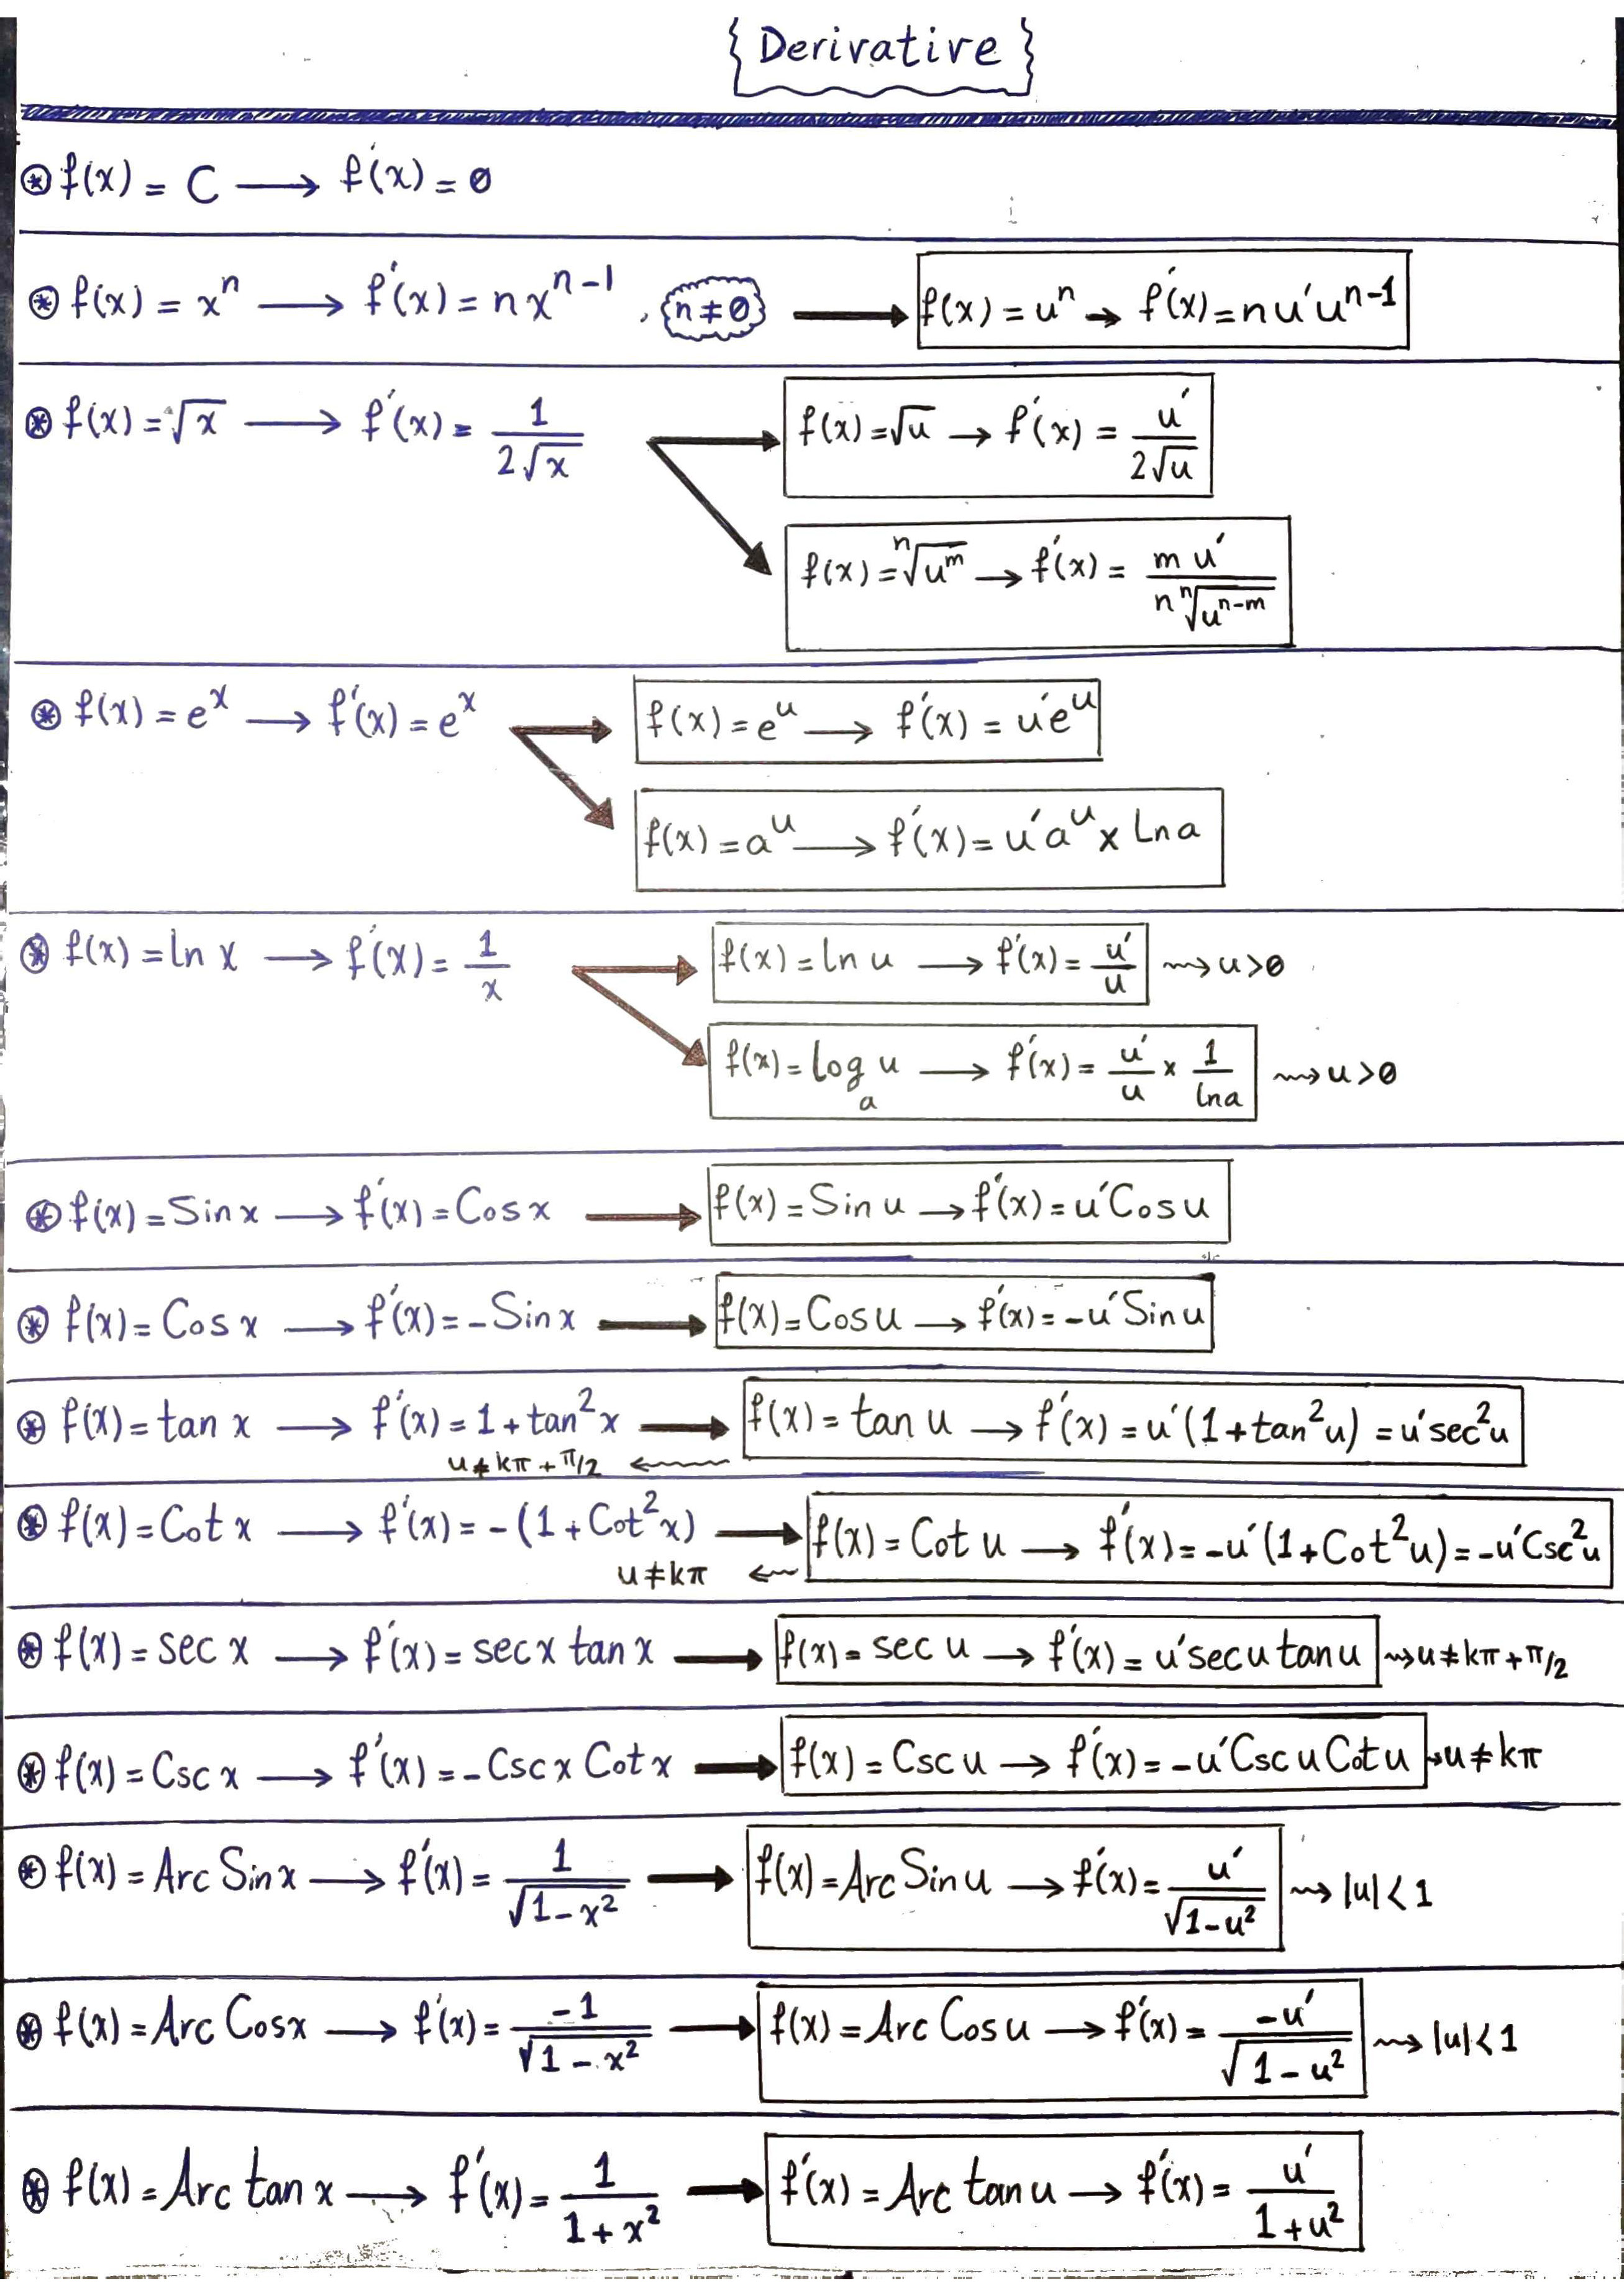 Derivative
f(x) = C ⟶ f'(x) = 0
f(x) = xⁿ ⟶ f'(x) = n xⁿ⁻¹ , n ≠ 0 ⟶ f(x) = uⁿ → f'(x) = n u' uⁿ⁻¹
f(x) = √x ⟶ f'(x) = 1/(2√x) ⟶ f(x) = √u → f'(x) = u'/(2√u)
f(x) = ⁿ√(u^m) → f'(x) = m u'/(n ⁿ√(u^(n-m)))
f(x) = e^x ⟶ f'(x) = e^x ⟶ f(x) = e^u ⟶ f'(x) = u' e^u
f(x) = a^u ⟶ f'(x) = u' a^u × Ln a
f(x) = ln x ⟶ f'(x) = 1/x ⟶ f(x) = ln u ⟶ f'(x) = u'/u ⇝ u > 0
f(x) = log_a u ⟶ f'(x) = u'/u × 1/lna ⇝ u > 0
f(x) = Sin x ⟶ f'(x) = Cos x ⟶ f(x) = Sin u → f'(x) = u' Cos u
f(x) = Cos x ⟶ f'(x) = -Sin x ⟶ f(x) = Cos u → f'(x) = -u' Sin u
f(x) = tan x ⟶ f'(x) = 1 + tan²x ⟶ f(x) = tan u → f'(x) = u'(1 + tan²u) = u' sec²u
u ≠ kπ + π/2 ⇜
f(x) = Cot x ⟶ f'(x) = -(1 + Cot²x) ⟶ f(x) = Cot u → f'(x) = -u'(1 + Cot²u) = -u' Csc²u
u ≠ kπ ⇜
f(x) = sec x ⟶ f'(x) = sec x tan x ⟶ f(x) = sec u → f'(x) = u' sec u tan u ⇝ u ≠ kπ + π/2
f(x) = Csc x ⟶ f'(x) = -Csc x Cot x ⟶ f(x) = Csc u → f'(x) = -u' Csc u Cot u ⇝ u ≠ kπ
f(x) = Arc Sin x ⟶ f'(x) = 1/√(1-x²) ⟶ f(x) = Arc Sin u → f'(x) = u'/√(1-u²) ⇝ |u| < 1
f(x) = Arc Cos x ⟶ f'(x) = -1/√(1-x²) ⟶ f(x) = Arc Cos u → f'(x) = -u'/√(1-u²) ⇝ |u| < 1
f(x) = Arc tan x ⟶ f'(x) = 1/(1+x²) ⟶ f'(x) = Arc tan u → f'(x) = u'/(1+u²)